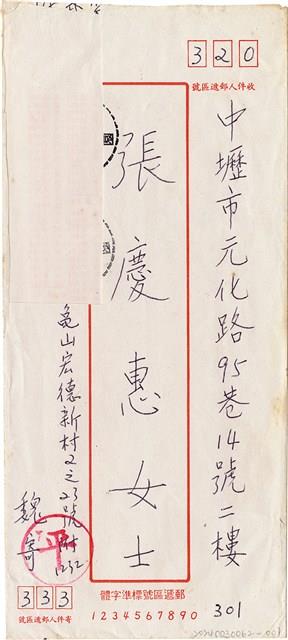 320
收件人郵遞區號
中壢市元化路95巷14號二樓
301
張慶惠女士
龜山宏德新村2之23號附1232
魏寄
平
國
333
寄件人郵遞區號
郵遞區號標準字體
1234567890
20240030062-001